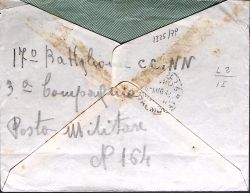 1325/79
17o Battaglione CC.NN
3a Compagnia
Posto Militare
No 164